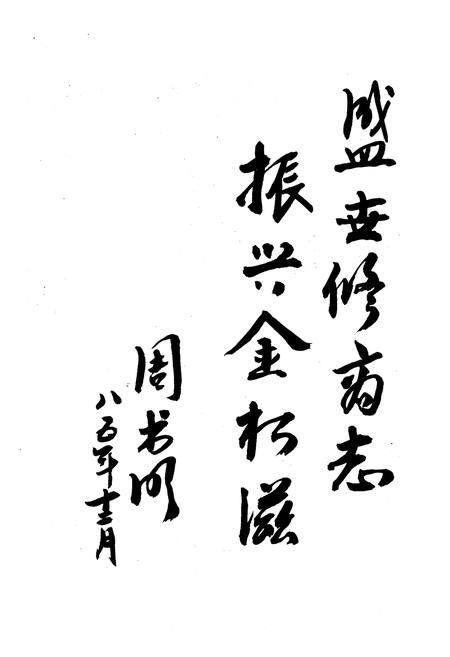 盛世修商志
振兴金松滋
周书明
八五年十二月